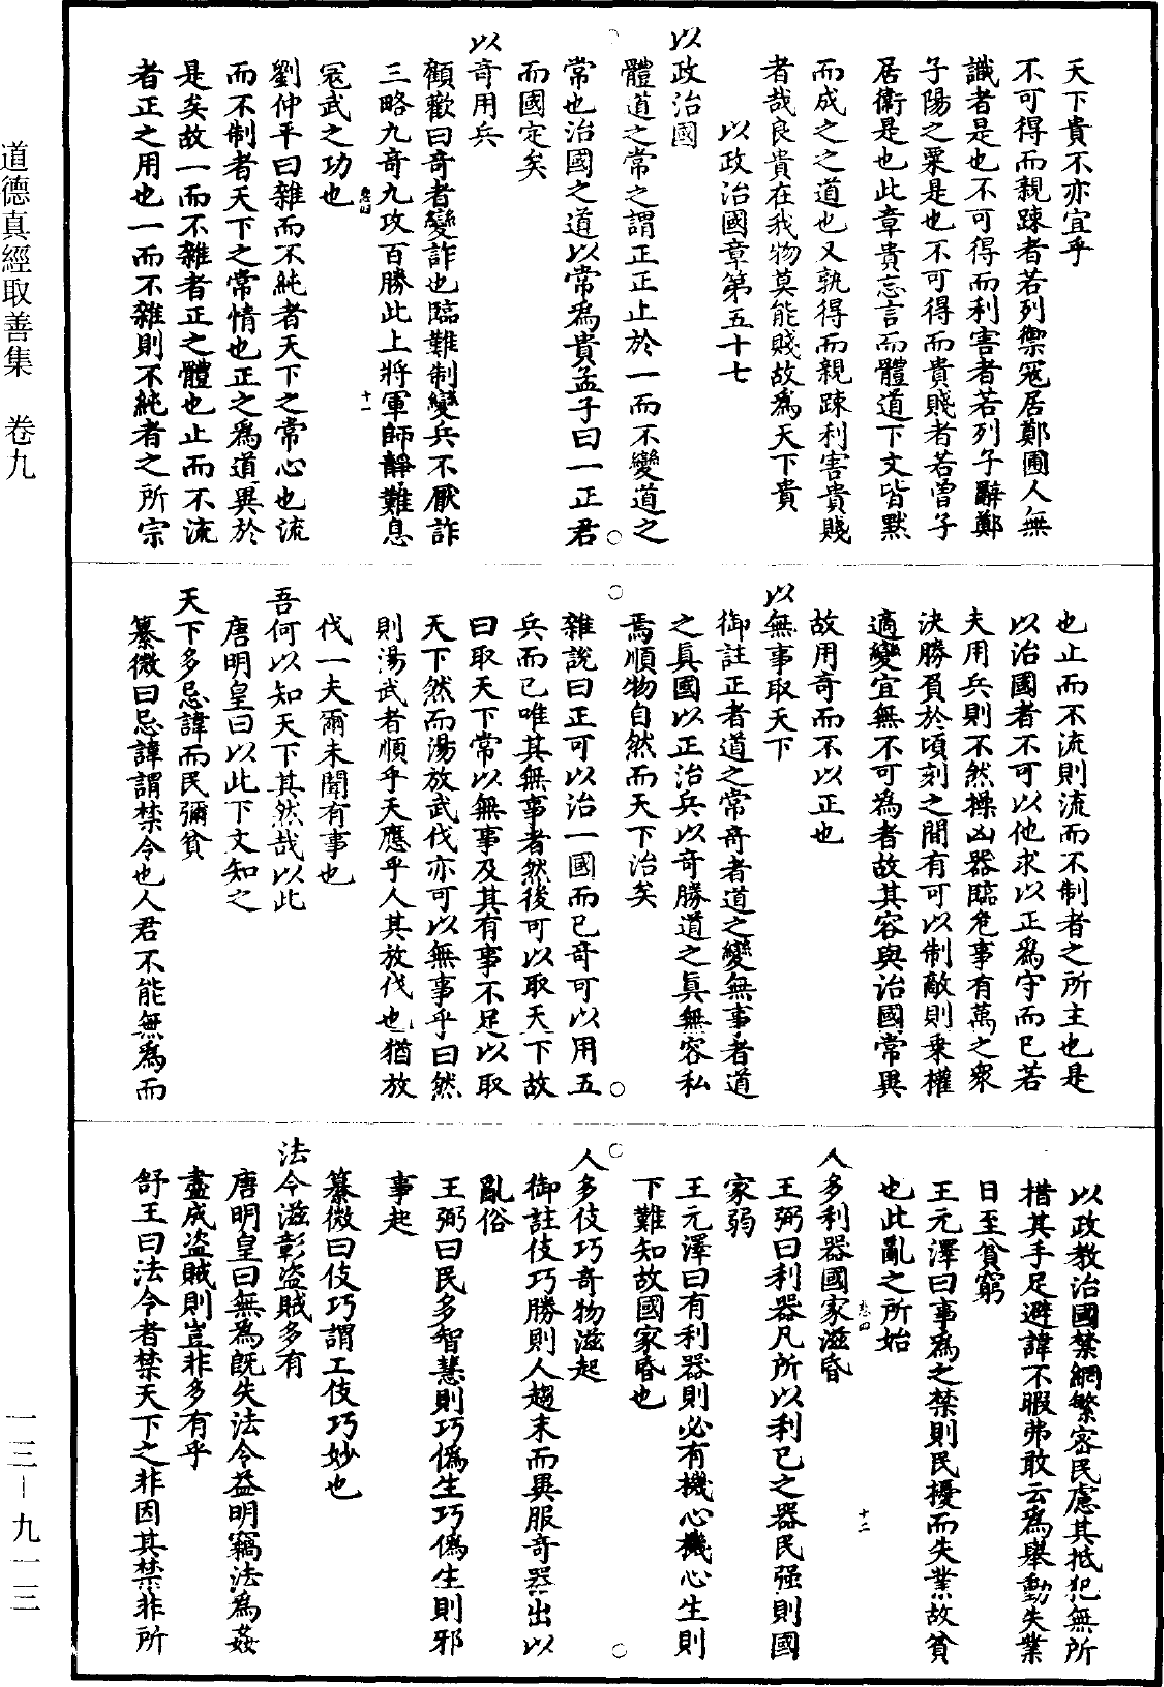 天下貴不亦宜乎
不可得而親踈者若列禦寇居鄭圃人無
識者是也不可得而利害者若列子辭鄭
子陽之粟是也不可得而貴賤者若曾子
居衛是也此章貴忘言而體道下文皆默
而成之之道也又孰得而親踈利害貴賤
者哉良貴在我物莫能賤故爲天下貴
以政治國章第五十七
以政治國
體道之常之謂正正止於一而不變道之
常也治國之道以常爲貴孟子曰一正君
而國定矣
以奇用兵
顧歡曰奇者變詐也臨難制變兵不厭詐
三略九奇九攻百勝此上將軍師靜難息
寇武之功也
劉仲平曰雜而不純者天下之常心也流
而不制者天下之常情也正之爲道異於
是矣故一而不雜者正之體也止而不流
者正之用也一而不雜則不純者之所宗
也止而不流則流而不制者之所主也是
以治國者不可以他求以正爲守而已若
夫用兵則不然操凶器臨危事有萬之衆
決勝負於頃刻之間有可以制敵則乗權
適變宜無不可爲者故其容與治國常異
故用奇而不以正也
以無事取天下
御註正者道之常奇者道之變無事者道
之眞國以正治兵以奇勝道之眞無容私
焉順物自然而天下治矣
雜說曰正可以治一國而已奇可以用五
兵而已唯其無事者然後可以取天下故
曰取天下常以無事及其有事不足以取
天下然而湯放武伐亦可以無事乎曰然
則湯武者順乎天應乎人其放伐也猶放
伐一夫爾未聞有事也
吾何以知天下其然哉以此
唐明皇曰以此下文知之
天下多忌諱而民彌貧
纂微曰忌諱謂禁令也人君不能無爲而
以政教治國禁網繁密民慮其抵犯無所
措其手足避諱不暇弗敢云爲舉動失業
日至貧窮
王元澤曰事爲之禁則民擾而失業故貧
也此亂之所始
人多利器國家滋昏
王弼曰利器凡所以利己之器民强則國
家弱
王元澤曰有利器則必有機心機心生則
下難知故國家昏也
人多伎巧奇物滋起
御註伎巧勝則人趨末而異服奇器出以
亂俗
王弼曰民多智慧則巧僞生巧僞生則邪
事起
纂微曰伎巧謂工伎巧妙也
法令滋彰盜賊多有
唐明皇曰無爲旣失法令益明竊法爲姦
盡成盜賊則豈非多有乎
舒王曰法令者禁天下之非因其禁非所
道德真經取善集　卷九
一三—九一三
十一
十二